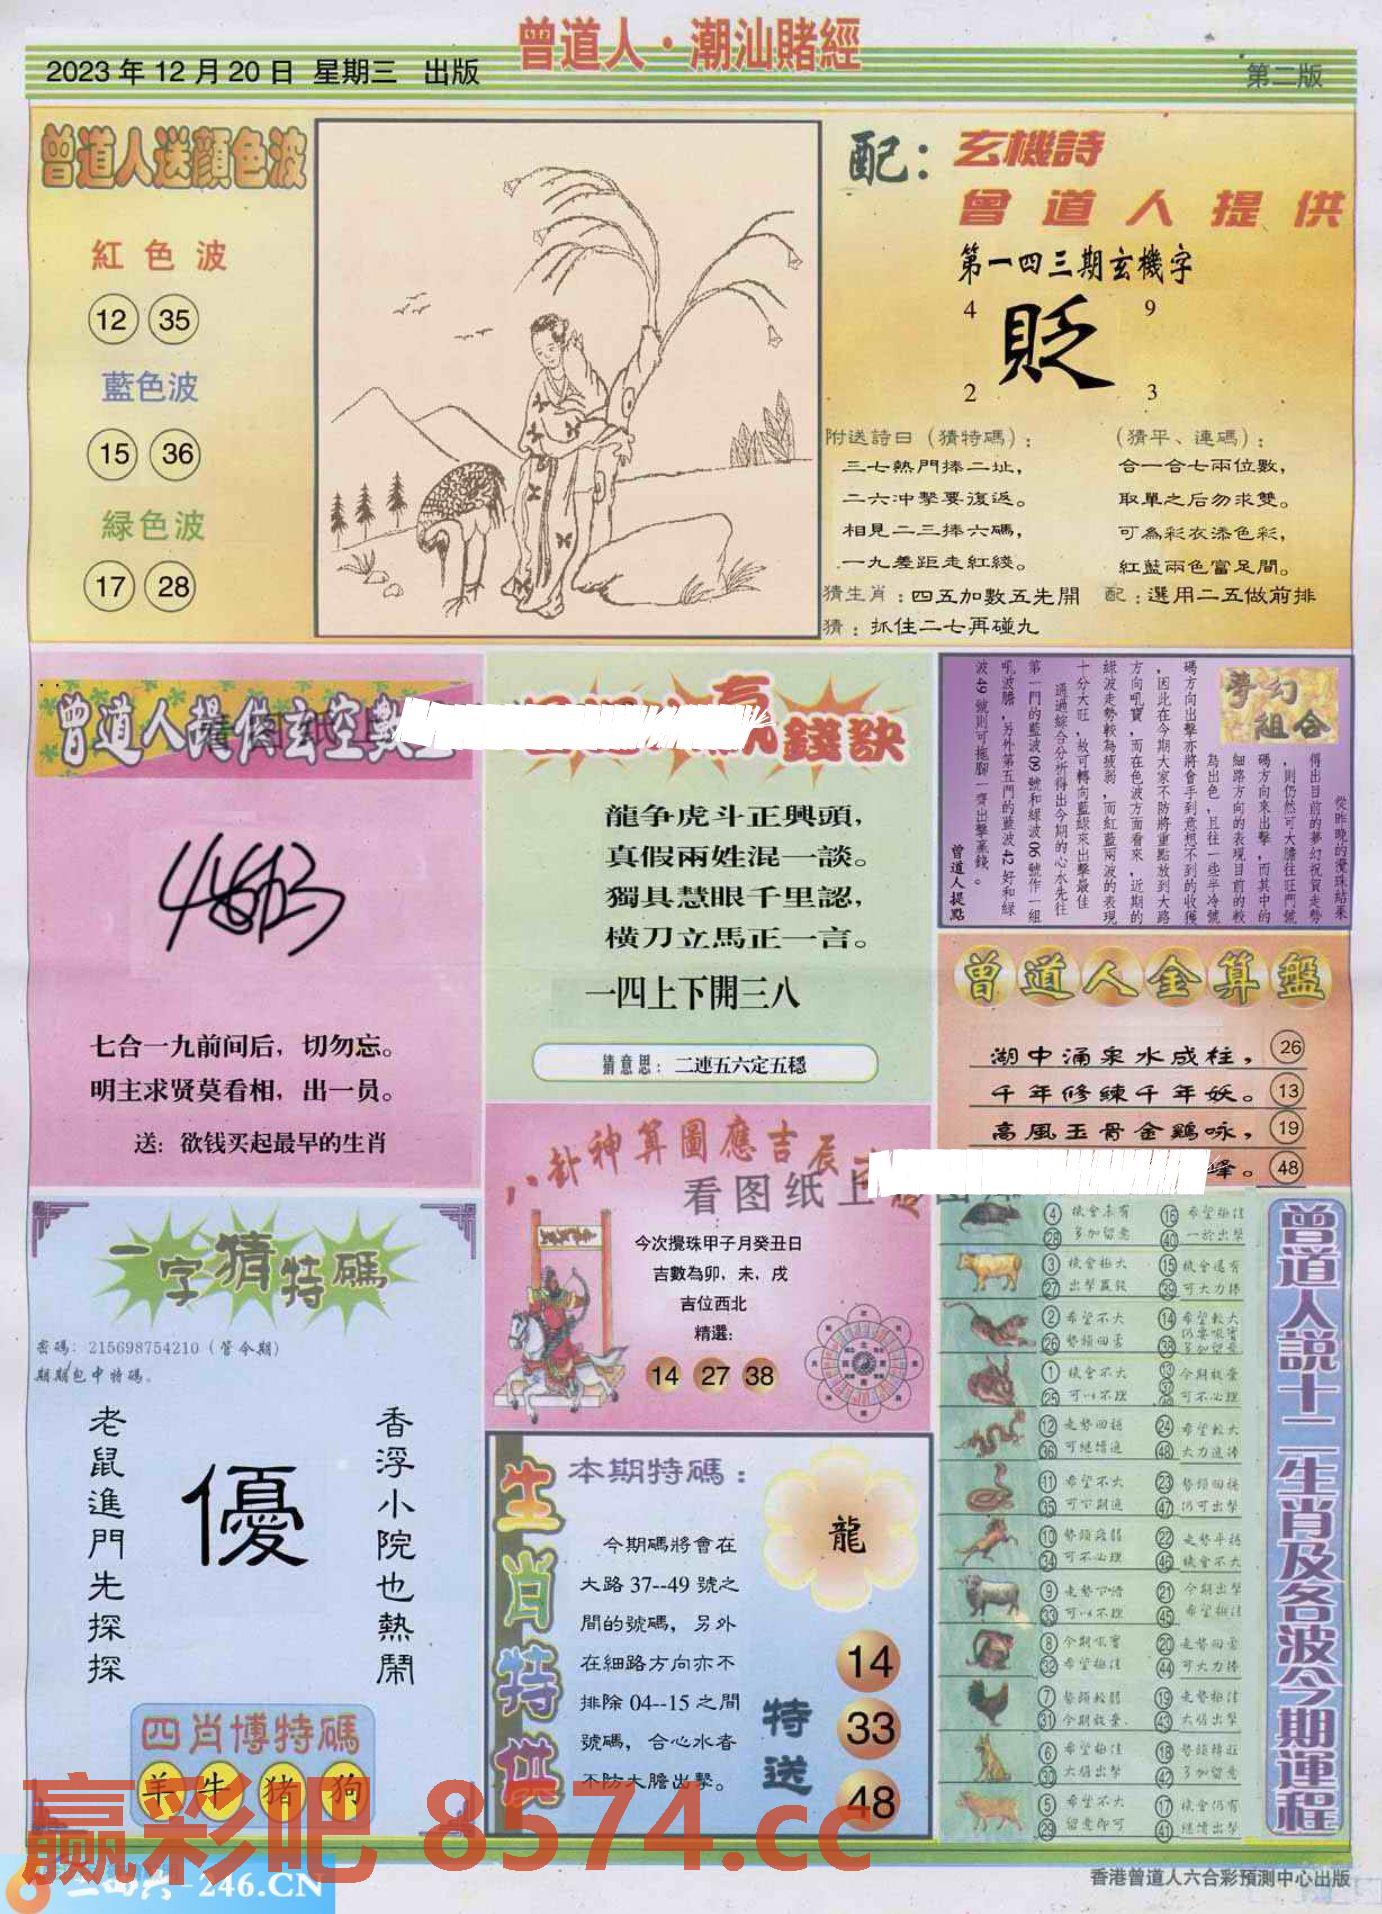 曾道人·潮汕賭經
2023年12月20日 星期三 出版
第二版
曾道人送顔色波
紅色波
12 35
藍色波
15 36
緑色波
17 28
配：玄機詩
曾道人提供
第一四三期玄機字
4 9
貶
2 3
附送詩曰（猜特碼）：
三七熱門捧二址，
二六冲擊要復返。
相見二三捧六碼，
一九差距走紅綫。
猜生肖：四五加數五先開
猜：抓住二七再碰九
（猜平、連碼）：
合一合七兩位數，
取單之后勿求雙。
可為彩衣添色彩，
紅藍兩色富足間。
配：選用二五做前排
曾道人提供玄空數
七合一九前间后，切勿忘。
明主求贤莫看相，出一员。
送：欲钱买起最早的生肖
錢訣
龍争虎斗正興頭，
真假兩姓混一談。
獨具慧眼千里認，
橫刀立馬正一言。
一四上下開三八
猜意思：二連五六定五穩
夢幻
組合
從昨晚的攪珠結果
得出目前的夢幻祝賀走勢
，則仍然可大膽往旺門號
碼方向來出擊，而其中的
細路方向的表現目前的較
為出色，且往一些半冷號
碼方向出擊亦將會手到意想不到的收獲
，因此在今期大家不防將重點放到大路
方向吼寶，而在色波方面看來，近期的
綠波走勢較為疲弱，而紅藍兩波的表現
十分大旺，故可轉向藍綠來出擊最佳
通過綜合分析得出今期的心水先往
第一門的藍波09號和綠波06號作一組
吼波膽，另外第五門的藍波42好和綠
波49號則可拖腳一齊出擊羸錢。
曾道人提點
曾道人金算盤
湖中涌泉水成柱， 26
千年修練千年妖。 13
高風玉骨金鷄咏， 19
峰。 48
八卦神算圖應吉辰
看图纸上
今次攪珠甲子月癸丑日
吉數為卯，未，戌
吉位西北
精選：
14 27 38
一字猜特碼
密碼：215698754210（管今期）
期期包中特碼。
香浮小院也熱鬧
優
老鼠進門先探探
四肖博特碼
羊 牛 猪 狗
生肖特供
本期特碼：
龍
今期碼將會在
大路37--49號之
間的號碼，另外
在細路方向亦不
排除04--15之間
號碼，合心水者
不防大膽出擊。
特送
14
33
48
曾道人説十二生肖及各波今期運程
4 16
28 多加留意 40
3 機會極大 15 機會還有
27 出擊羸錢 39 可大力捧
2 希望不大 14 希望較大
26 38
1 機會不大 13 今期放棄
25 37 可不必理
12 24 希望較大
36 48
11 希望不大 23
35 47 仍可出擊
10 22
34 可不必理 46 機會不大
9 21 今期出擊
33 45 希望極佳
8 今期吼寶 20
32 希望極佳 44 可大力捧
7 19 走勢極佳
31 今期放棄 43 大膽出擊
6 希望極佳 18
30 大膽出擊 42 多加留意
5 希望不大 17 機會仍有
29 留意即可 41 繼續出擊
赢彩吧 8574.cc
246.CN
香港曾道人六合彩預測中心出版